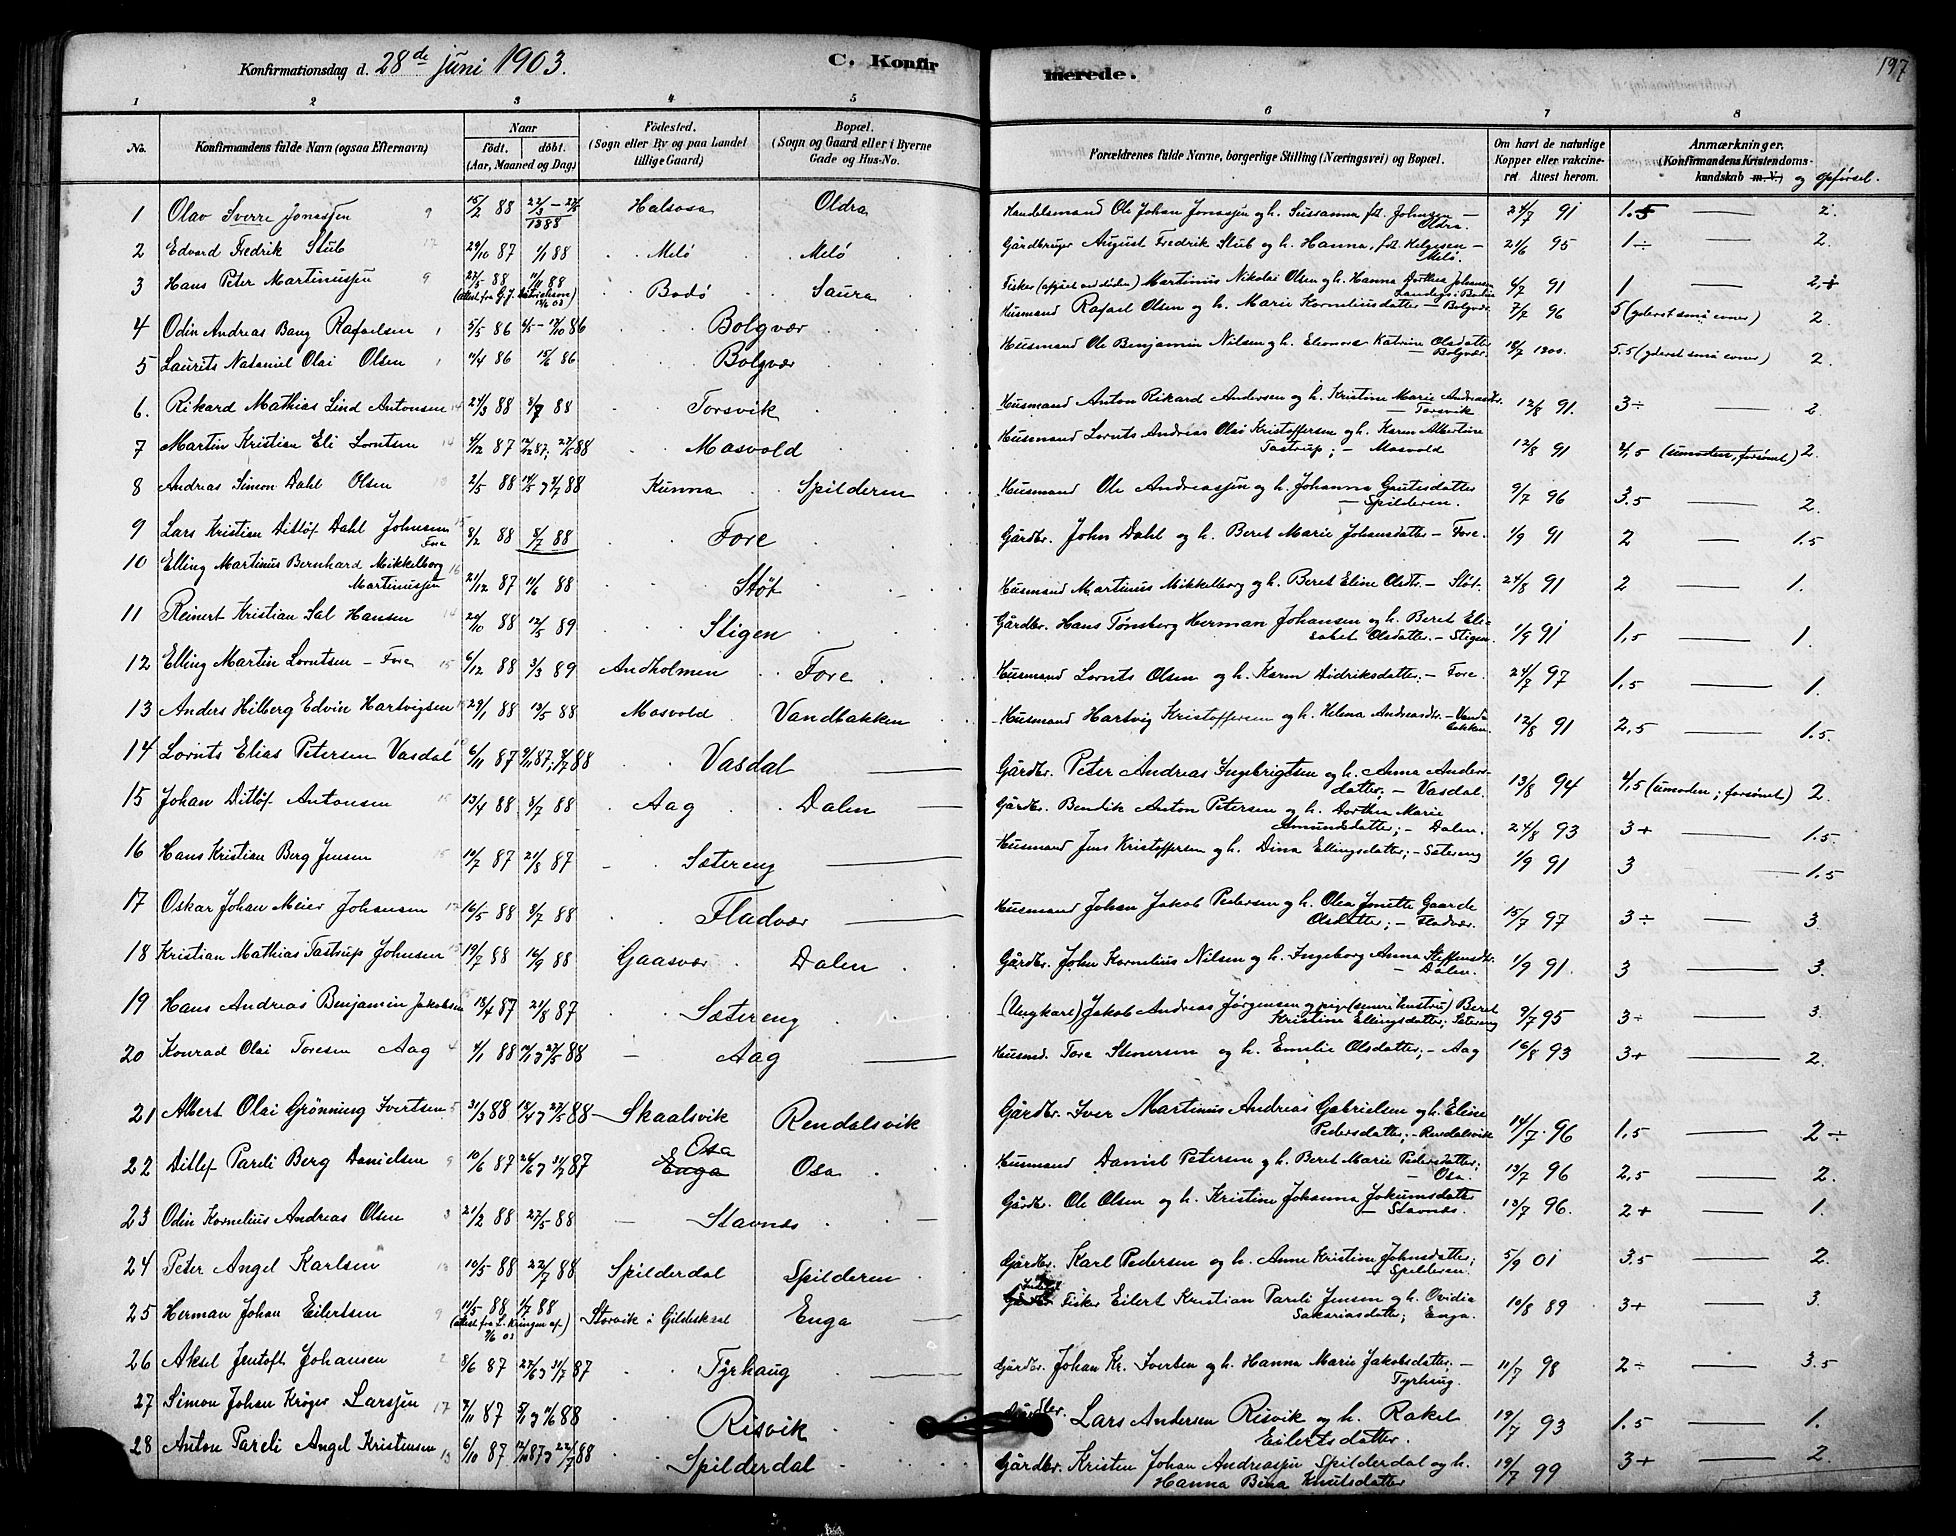 Konfirmationsdag d. 28de juni 1903. C. Konfirmerede. 197
1 2 3 4 5 6 7 8
No. Konfirmandens fulde Navn (ogsaa Efternavn) Naar født. døbt. (Aar, Maaned og Dag) Fødested. (Sogn eller By og paa Landet tillige Gaard) Bopæl. (Sogn og Gaard eller i Byerne Gade og Hus-No. Forældrenes fulde Navne, borgerlige Stilling (Næringsvei) og Bopæl. Om havt de naturlige Kopper eller vakcineret. Attest herom. Anmærkninger. (Konfirmandens Kristendomskundskab m. V.) og opførsel.
1 Olav Sverre Jonassen 9 15/2 88 Halsosa Oldra Handelsmand Ole Johan Jonassen og h. Susanna fdt. Johnsen – Oldra. 24/7 91 1.5 — 2.
2 Edvard Fredrik Stub 17 29/10 87 1/1 88 Melö Melö Gårdbruger August Fredrik Stub og h. Hanna, fdt. Helgesen – Melö. 21/6 95 1÷ — 2.
3 Hans Peter Martinussen 9 27/5 88 11/11 88 Bodö Saura Fisker Martinus Nikolai Olsen og h. Hanna Dorthea Johansen 6/7 91 1 — 2,÷
4 Odin Andreas Bang Rafaelsen 1 5/5 86 4/5 – 17/10 86 Bolgvær Husmand Rafael Olsen og h. Marie Korneliusdatter – Bolgvær 7/7 96 5 (yderst små evner) 2.
5 Laurits Nataniel Olai Olsen 1 11/4 86 15/6 86 Bolgvær Husmand Ole Benjamin Nilsen og h. Eleonora Katrine Olsdatter – Bolgvær. 18/7 1900. 5.5 (yderst små evner) 2.
6. Rikard Mathias Lind Antonsen 14 24/3 88 3/7 88 Torsvik Husmand Anton Rikard Andersen og h. Kristine Marie Andreasdtr. – Torsvik 12/8 91. 3÷ — 2.
7 Martin Kristian Eli Lorntsen 14 4/12 87 Masvold Husmand Lornts Andreas Olai Kristoffersen og h. Karen Albertine Tastrup; – Masvold 12/8 91 4,5 (umoden, forsömt) 2.
8 Andreas Simon Dahl Olsen 10 2/5 88 Kunna Spilderen Husmand Ole Andreassen og h. Johanna – Spilderen. 9/7 96 3.5 — 2.
9 Lars Kristian Ditlöf Dahl Johnsen Fore 15 8/2 88 8/7 88 Fore Gårdbr. John Dahl og h. Beret Marie Johansdatter – Fore. 1/9 91 2 — 1.5
10 Elling Martinus Bernhard Mikkelborg Martinussen 16 21/12 87 11/6 88 Stöt Husmand Martinus Mikkelborg og h. Beret Eline Olsdtr. – Stöt. 24/8 91 2 — 1.
11 Reinert Kristian Sal Hansen 14 20/10 88 12/5 89 Stigen Gårdbr. Hans Tönsberg Herman Johansen og h. Beret Elisabet Olsdatter. – Stigen. 1/9 91 1,5 — 1.
12 Elling Martin Lorntsen – Fore 15 6/12 88 3/3 89 Andholmen Fore Husmand Lornts Olsen og h. Karen Didriksdatter. – Fore. 24/7 97 1,5 — 1.
13 Anders Hilberg Edvin Hartvigsen 29/1 88 13/5 88 Masvold Vandbakken Husmand Hartvig Kristoffersen og h. Helena Andreasdtr. – Vandbakken. 12/8 91 2,5 — 1.5.
14 Lornts Elias Petersen Vasdal 6/11 87 Vasdal — Gårdbr. Peter Andreas Ingebrigtsen og h. Anna Andersdatter; – Vasdal. 13/8 94 4,5 (umoden; forsömt) 2.
15 Johan Ditlöf Antonsen 15 13/4 88 3/7 88 Aag Dalen — Gårdbr. Bendik Anton Petersen og h. Dorthea Marie Amundsdatter; – Dalen. 24/8 93 3+ — 1.5.
16 Hans Kristian Berg Jensen 15 10/7 87 21/8 87 Sætereng — Husmand Jens Kristoffersen og h. Dina Ellingsdatter; – Sætereng 1/9 91 3 — 1.5
17 Oskar Johan Meier Johansen 17 16/5 88 8/7 88 Fladvær — Husmand Johan Jakob Pedersen og h. Olea Jonette Gaarde Olsdatter; – Fladvær. 15/7 97 3÷ — 3.
18 Kristian Mathias Tastrup Johnsen 19/7 88 16/9 88 Gaasvær Dalen Gårdbr. John Kornelius Nilsen og h. Ingeborg Anna Steffensdtr. – Dalen. 1/9 91. 3 — 3.
19 Hans Andreas Benjamin Jakobsen 13/4 87 21/8 87 Sætereng (Ungkarl) Jakob Andreas Jörgensen og pige (senere hustru) Beret Kristine Ellingsdatter; Sætereng 9/7 95 3÷ — 3.
20 Konrad Olai Toresen Aag 4 4/1 88 – Aag — Husmd. Tore Stenersen og h. Emilie Olsdatter; – Aag 16/8 93 3+ — 2.
21 Albert Olai Grönning Ivertsen 5 31/3 88 Skaalsvik Rendalsvik Gårdbr. Iver Martinus Andreas Gabrielsen og h. Eline Pedersdatter; – Rendalsvik 14/7 96 1,5 — 2 ÷
22 Ditlef Pareli Berg Danielsen 9 10/6 87 Osa Enga Osa Husmand Daniel Petersen og h. Beret Marie Pedersdatter; – Osa. 13/7 96 2,5 — 2.
23 Odin Kornelius Andreas Olsen 8 21/2 88 27/5 88 – Stavnæs Gårdbr. Ole Olsen og h. Kristine Johanna Jokumsdatter – Stavnæs. 13/7 96. 2+ — 1.
24 Peter Angel Karlsen 13 10/5 88 22/7 88 Spilderdal Spilderen Gårdbr. Karl Pedersen og h. Anne Kristine Johnsdatter; – Spilderen. 5/9 01 3.5 — 2.
25 Herman Johan Eilertsen 9 11/5 88 1/7 88 Storvik i Gildeskaal Enga — Gårdbr Fisker Eilert Kristian Pareli Jensen og h. Ovidia Sakariasdatter; Enga. 10/8 89 3+ — 3.
26 Aksel Jentoft Johansen 2 8/6 87 Tyrhaug — Gårdbr. Johan Kr. Ivertsen og h. Hanna Marie Jakobsdatter; – Tyrhaug. 11/7 98 2÷ — 3.5
27 Simon Johan Kröger Larssen 17 7/11 87 Risvik Gårdbr. Lars Andersen Risvik og h. Rakel Eilertsdatter. 19/7 93 1.5 — 1.
28 Anton Pareli Angel Kristensen 13 6/10 87 Spilderdal Gårdbr. Kristen Johan Andreassen Spilderdal og h. Hanna Bina Knutsdatter 19/7 99 3+ — 2.